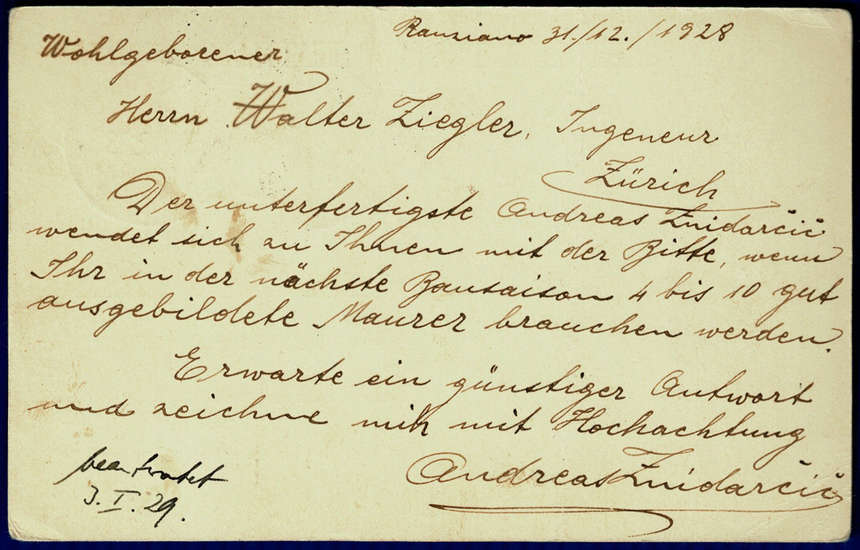 Ranziano 31./12./1928
Wohlgeborener
Herrn Walter Ziegler, Ingeneur
Zürich
Der unterfertigste Andreas Žnidarčić
wendet sich zu Ihnen mit der Bitte, wenn
Ihr in der nächste Bausaison 4 bis 10 gut
ausgebildete Maurer brauchen werden.
Erwarte ein günstiger Antwort
und zeichne mih mit Hochachtung
Andreas Žnidarčić
beantwortet
3. I. 29.